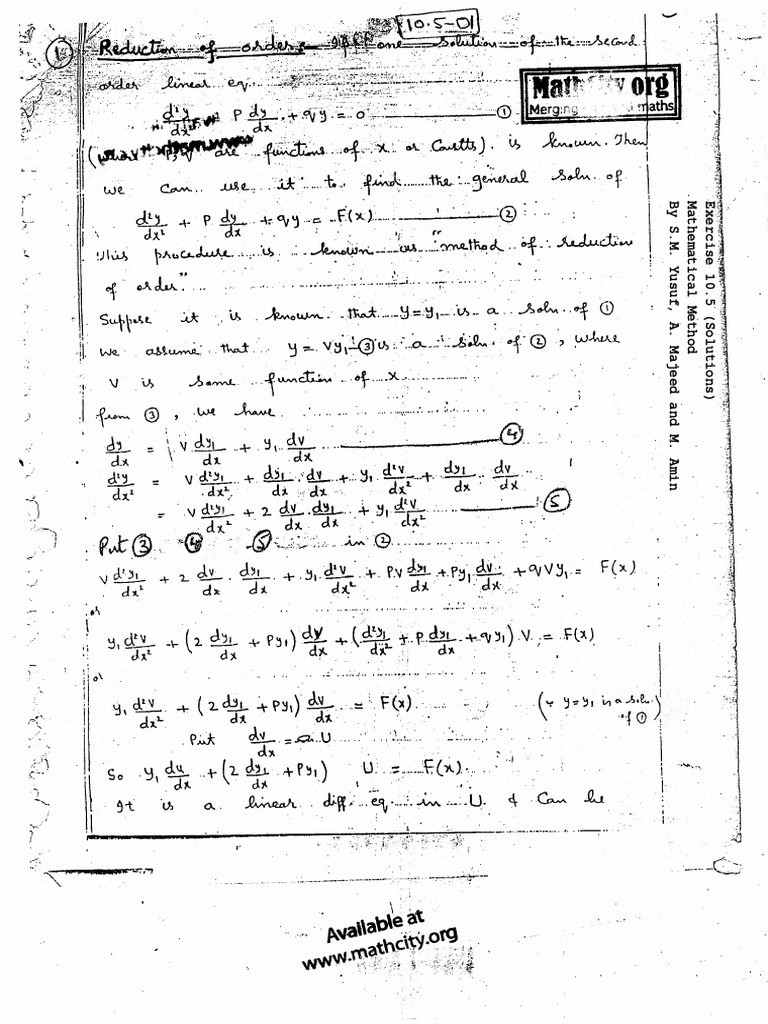 10.5-01
① Reduction of order:- If one solution of the second
order linear eq.
d²y/dx² + P dy/dx + qy = 0 ①
(where P, q are functions of x or Constts). is known. Then
we can use it to find the general soln of
d²y/dx² + P dy/dx + qy = F(x) ②
This procedure is known as "method of reduction
of order."
Suppose it is known that y=y₁ is a soln of ①
we assume that y = Vy₁-③ is a soln. of ②, where
V is some function of x
from ③, we have
dy/dx = V dy₁/dx + y₁ dv/dx ④
d²y/dx² = V d²y₁/dx² + dy₁/dx . dv/dx + y₁ d²v/dx² + dy₁/dx . dv/dx
= V d²y₁/dx² + 2 dv/dx . dy₁/dx + y₁ d²v/dx² ⑤
Put ③ ④ ⑤ in ②
V d²y₁/dx² + 2 dv/dx . dy₁/dx + y₁ d²v/dx² + PV dy₁/dx + Py₁ dv/dx + qVy₁ = F(x)
or
y₁ d²v/dx² + (2 dy₁/dx + Py₁) dv/dx + (d²y₁/dx² + P dy₁/dx + qy₁) V = F(x)
or
y₁ d²v/dx² + (2 dy₁/dx + Py₁) dv/dx = F(x) (∵ y=y₁ is a soln. of ①)
Put dv/dx = U
So y₁ du/dx + (2 dy₁/dx + Py₁) U = F(x).
It is a linear diff. eq. in U & Can be
MathCity.org
Merging maths
Exercise 10.5 (Solutions)
Mathematical Method
By S.M. Yusuf, A. Majeed and M. Amin
Available at
www.mathcity.org